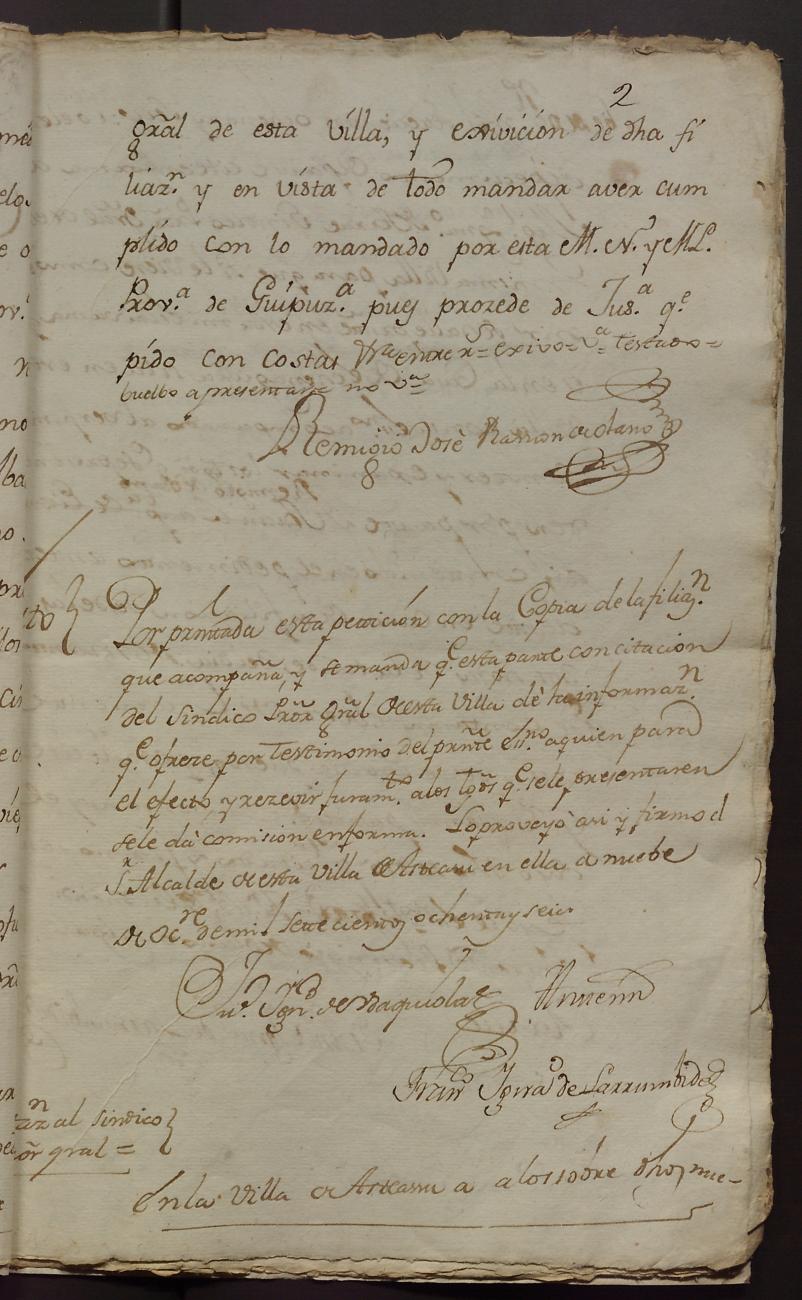 2
grãl de esta villa, y exivición de dha fi
liaz.n y en vista de todo mandar aver cum
plido con lo mandado por esta M. N. y M. L.
Prov.a de Guipuz.a pues prozede de Jus.a q.e
pido con costas entre r.s = exivo = v.a testado =
buelbo a presentar = no v.a
Remigio Josè Ramon de Olano
to
Por prntada esta peticion con la Copia de la filiaz.n
que acompaña, y se manda q.e esta parte con citacion
del Sindico Pror grãl de esta villa dè la informaz.n
q.e ofreze por testimonio del prnte esno. a quien para
el efecto, y rezevir juram.to a los tgõs q.e se le presentaren
se le dà comision en forma. Lo proveyò asi y firmo el
S.r Alcalde de esta villa de Asteasu en ella a nuebe
de Oc.re de mil sete cientos ochenta y seis
Ju.n Ign.o de Ydaquiolaz Antemi
Fran.co Igna.o de Larrumbide
al sindico
or gral =
En la villa de Asteasu a a los sobre dhos nue-